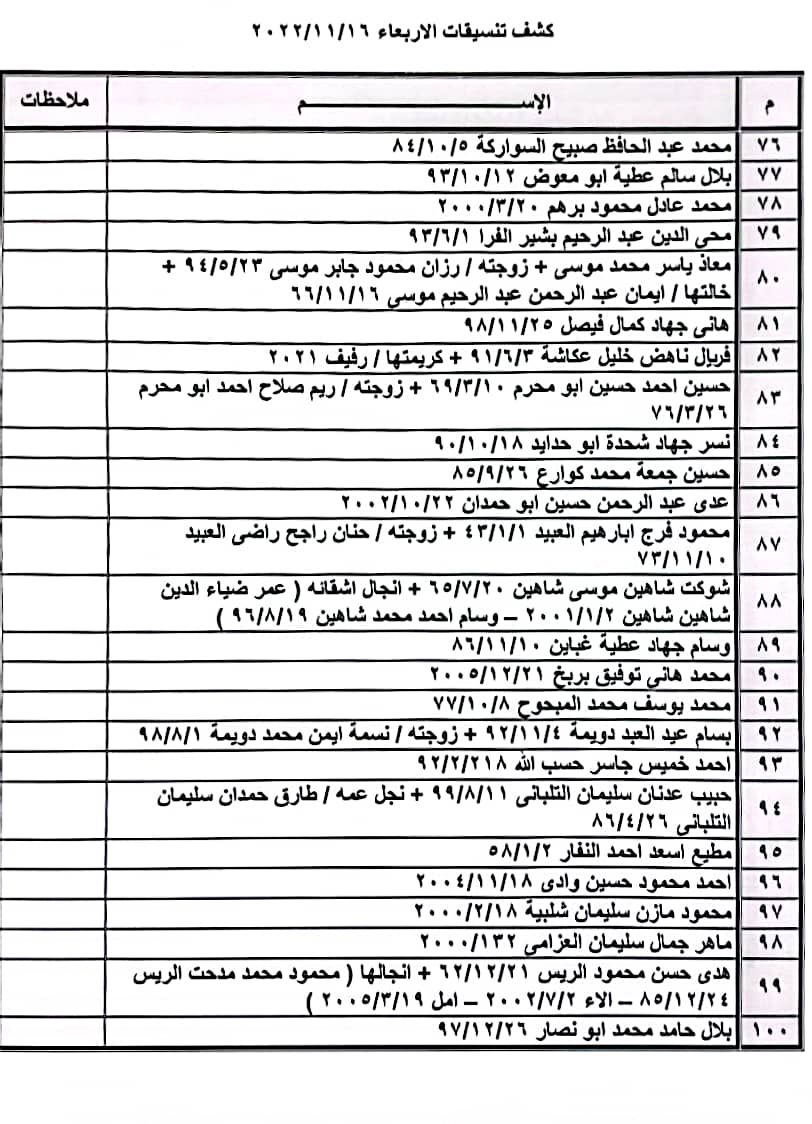 كشف تنسيقات الاربعاء ٢٠٢٢/١١/١٦
م الإســـــــم ملاحظات
٧٦ محمد عبد الحافظ صبيح السواركة ٨٤/١٠/٥
٧٧ بلال سالم عطية ابو معوض ٩٣/١٠/١٢
٧٨ محمد عادل محمود برهم ٢٠٠٠/٣/٢٠
٧٩ محى الدين عبد الرحيم بشير الفرا ٩٣/٦/١
٨٠ معاذ ياسر محمد موسى + زوجته / رزان محمود جابر موسى ٩٤/٥/٢٣ +
خالتها / ايمان عبد الرحمن عبد الرحيم موسى ٦٦/١١/١٦
٨١ هانى جهاد كمال فيصل ٩٨/١١/٢٥
٨٢ فريال ناهض خليل عكاشة ٩١/٦/٣ + كريمتها / رفيف ٢٠٢١
٨٣ حسين احمد حسين ابو محرم ٦٩/٣/١٠ + زوجته / ريم صلاح احمد ابو محرم
٧٦/٣/٢٦
٨٤ نسر جهاد شحدة ابو حدايد ٩٠/١٠/١٨
٨٥ حسين جمعة محمد كوارع ٨٥/٩/٢٦
٨٦ عدى عبد الرحمن حسين ابو حمدان ٢٠٠٢/١٠/٢٢
٨٧ محمود فرج ابارهيم العبيد ٤٣/١/١ + زوجته / حنان راجح راضى العبيد
٧٣/١١/١٠
٨٨ شوكت شاهين موسى شاهين ٦٥/٧/٢٠ + انجال اشقائه ( عمر ضياء الدين
شاهين شاهين ٢٠٠١/١/٢ – وسام احمد محمد شاهين ٩٦/٨/١٩ )
٨٩ وسام جهاد عطية غباين ٨٦/١١/١٠
٩٠ محمد هانى توفيق بربخ ٢٠٠٥/١٢/٢١
٩١ محمد يوسف محمد المبحوح ٧٧/١٠/٨
٩٢ بسام عيد العبد دويمة ٩٢/١١/٤ + زوجته / نسمة ايمن محمد دويمة ٩٨/٨/١
٩٣ احمد خميس جاسر حسب الله ٩٢/٢/٢١٨
٩٤ حبيب عدنان سليمان التلبانى ٩٩/٨/١١ + نجل عمه / طارق حمدان سليمان
التلبانى ٨٦/٤/٢٦
٩٥ مطيع اسعد احمد النفار ٥٨/١/٢
٩٦ احمد محمود حسين وادى ٢٠٠٤/١١/١٨
٩٧ محمود مازن سليمان شلبية ٢٠٠٠/٢/١٨
٩٨ ماهر جمال سليمان العزامى ٢٠٠٠/١٣٢
٩٩ هدى حسن محمود الريس ٦٢/١٢/٢١ + انجالها ( محمود محمد مدحت الريس
٨٥/١٢/٢٤ – الاء ٢٠٠٢/٧/٢ – امل ٢٠٠٥/٣/١٩ )
١٠٠ بلال حامد محمد ابو نصار ٩٧/١٢/٢٦